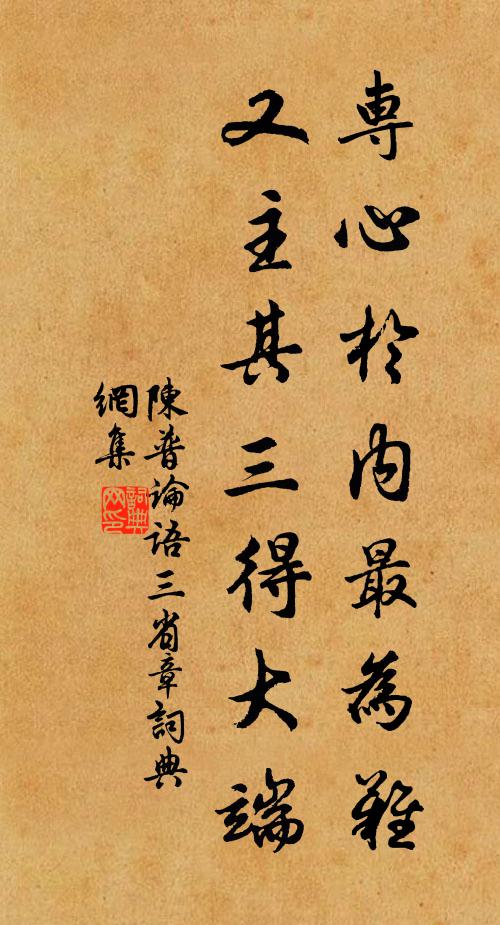 専心於內最為難
又主其三得大端
陳普論語三省章詞典
網集
詞典
網印